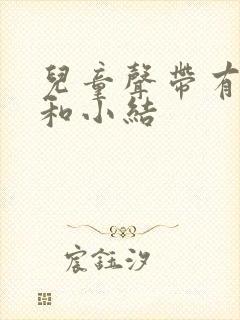 兒童聲帶有
和小結
宸鈺汐